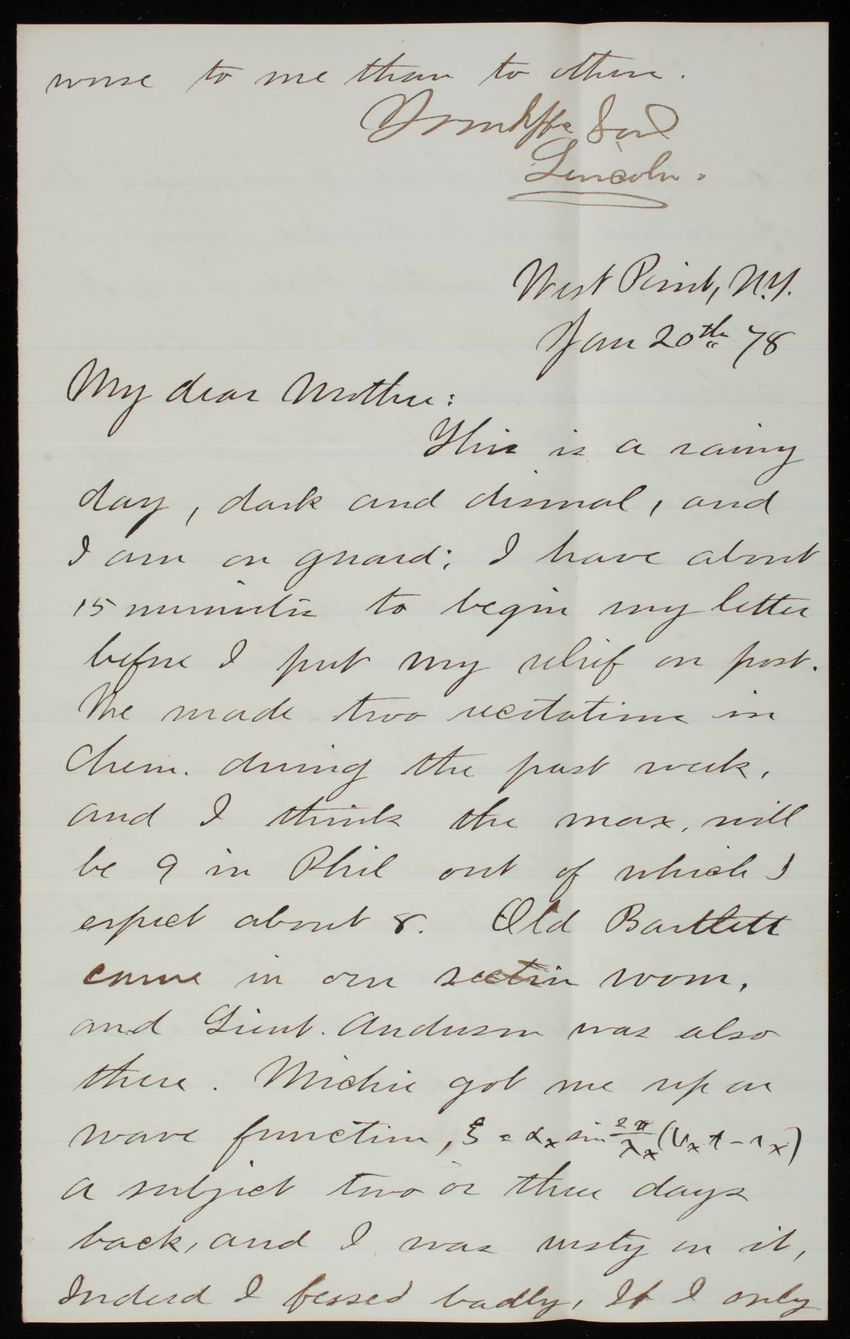 worse to me than to others.
Your Aff. Son
Lincoln.
West Point, N.Y.
Jan 20th 78
My dear Mother:
This is a rainy
day, dark and dismal, and
I am on guard; I have about
15 minutes to begin my letter
before I put my relief on post.
We made two recitations in
Chem. during the past week,
and I think the max. will
be 9 in Phil out of which I
expect about 8. Old Bartlett
came in our section room,
and Lieut. Anderson was also
there. Michie got me up on
wave function, ξ = αₓ sin 2π/λₓ (Vₓ t - rₓ)
a subject two or three days
back, and I was rusty on it,
Indeed I fessed badly, If I only